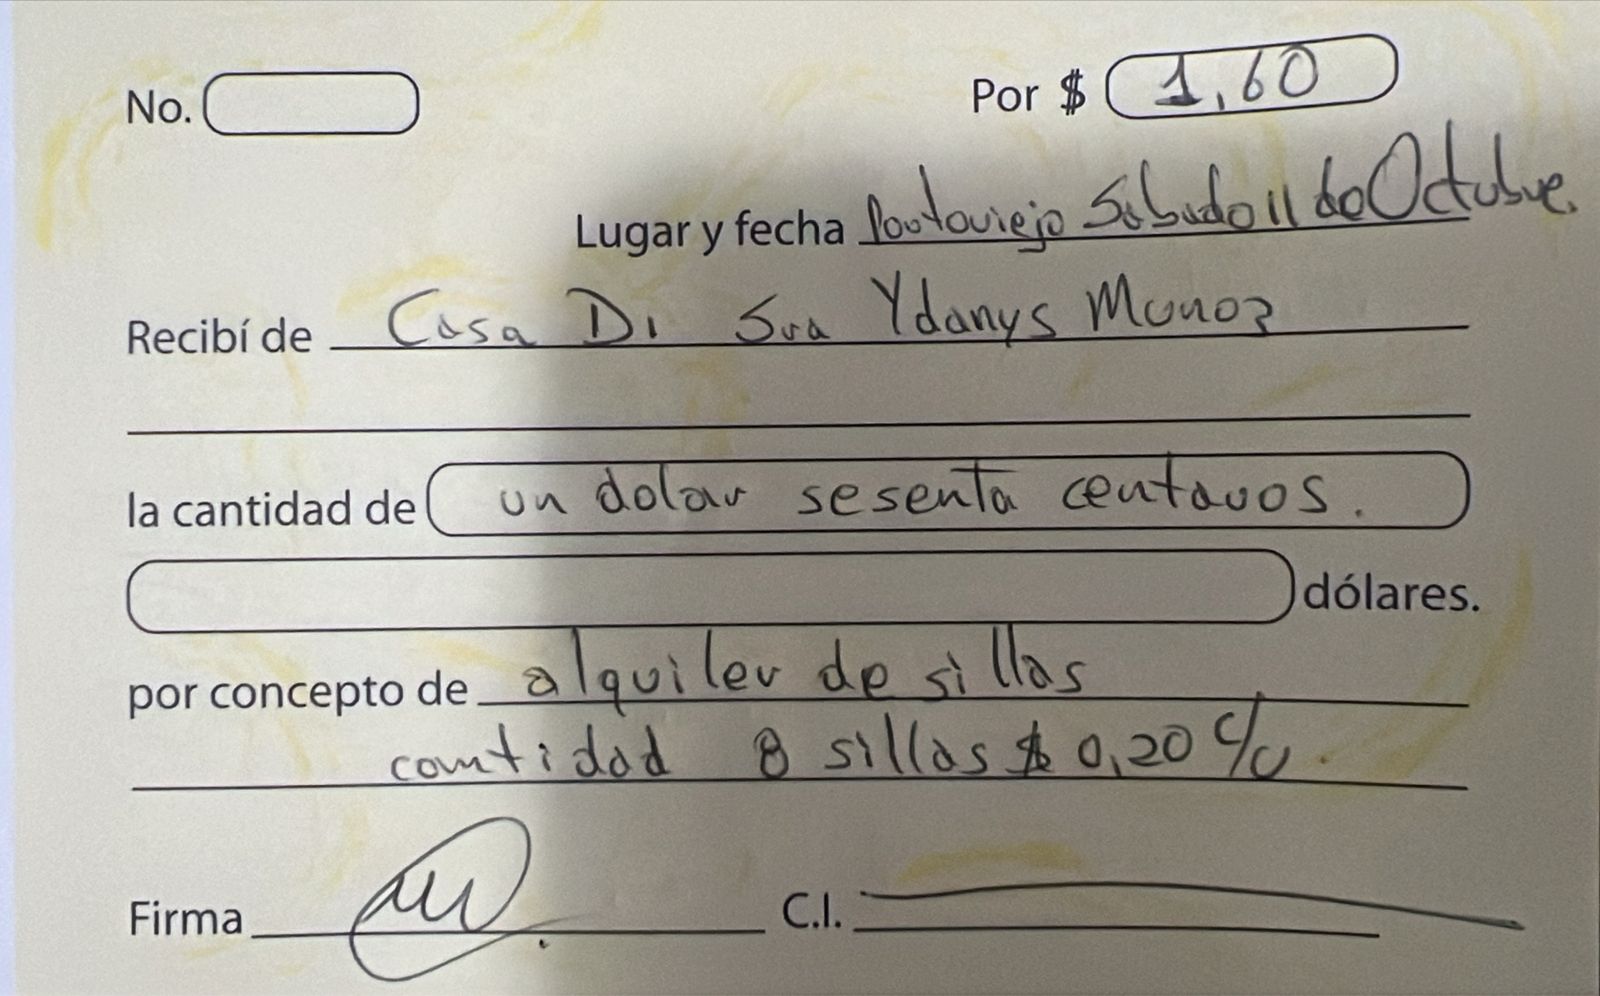 No.
Por $ 1,60
Lugar y fecha Portoviejo Sabado 11 de Octubre.
Recibí de Casa Di Sra Ydanys Munoz
la cantidad de un dolar sesenta centavos.
dólares.
por concepto de alquiler de sillas
cantidad 8 sillas $ 0,20 c/u.
Firma
C.I.